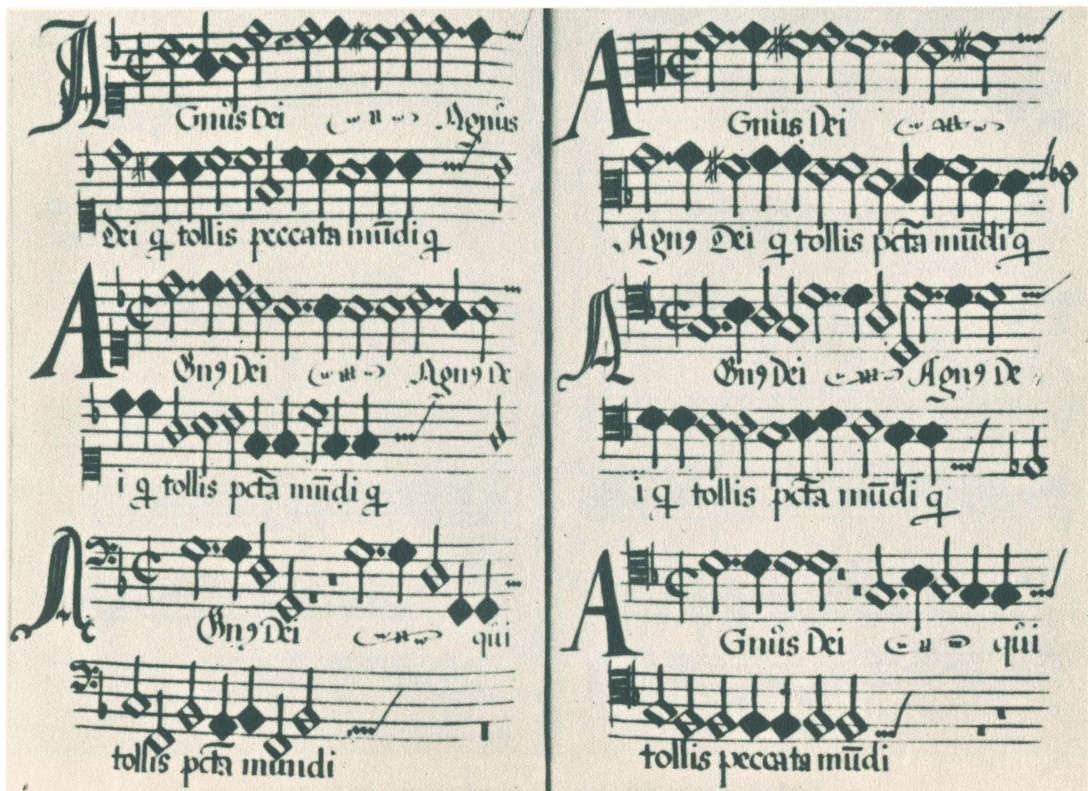 AGnus Dei Agnus
Dei q tollis peccata mūdi q
AGnꝰ Dei Agnꝰ De
i q tollis pcta mūdi q
AGnꝰ Dei qui
tollis pcta mundi
AGnus Dei
Agnꝰ Dei q tollis pcta mūdi q
AGnꝰ Dei Agnꝰ De
i q tollis pcta mūdi q
AGnus Dei qui
tollis peccata mūdi